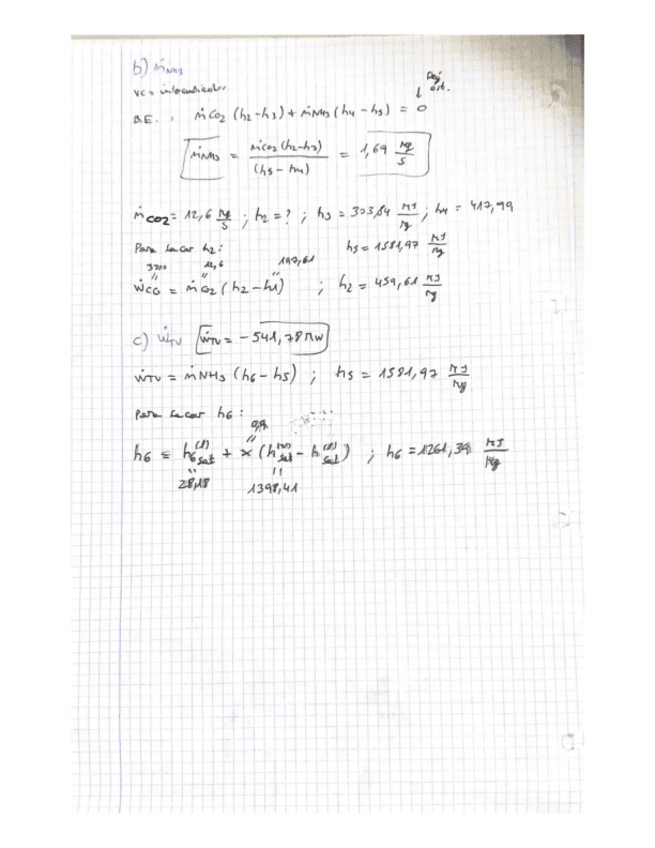 b) ṁNH3
VC = intercambiador
Rég est.
↓
B.E. : ṁCO2 (h2-h3) + ṁNH3 (h4 - h5) = 0
ṁNH3 = ṁCO2 (h2-h3) / (h5 - h4) = 1,69 kg/s
ṁCO2 = 12,6 kg/s ; h2 = ? ; h3 = 303,84 kJ/kg ; h4 = 417,99
Para sacar h2 : h5 = 1581,97 kJ/kg
3300 12,6 197,61
ẆCG = ṁCO2 (h2 - h1) ; h2 = 459,61 kJ/kg
c) ẆTV ẆTV = - 541,78 kW
ẆTV = ṁNH3 (h6 - h5) ; h5 = 1581,97 kJ/kg
Para sacar h6 :
0,9
h6 = h6sat(l) + x (hsat(v) - hsat(l)) ; h6 = 1261,39 kJ/kg
28,18 1398,41